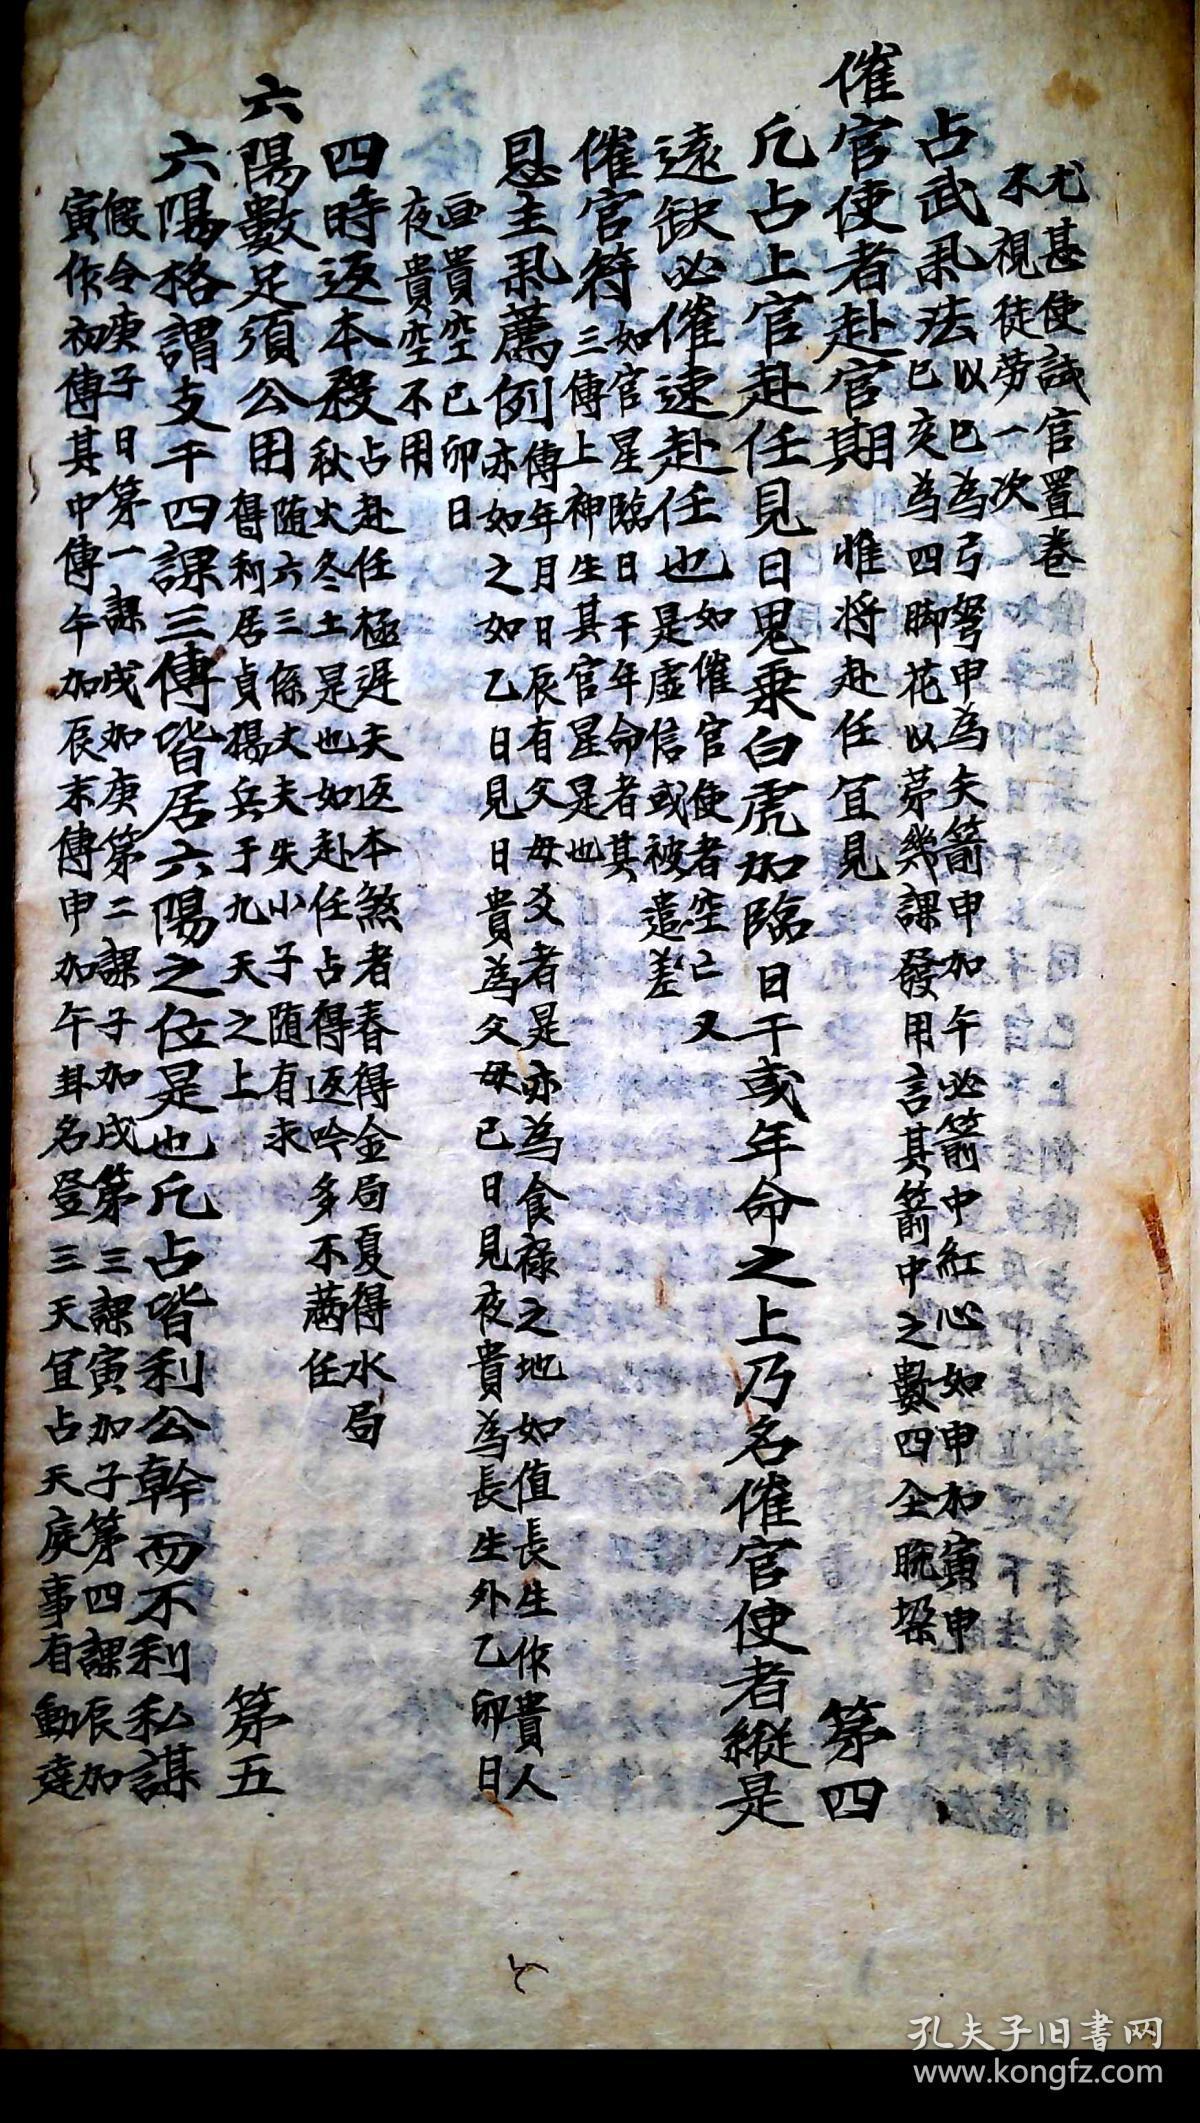 尤甚使試官置卷
不視徒勞一次
占武舉法
以巳為弓弩申為矢箭申加午必箭中紅心如申加寅申
巳亥為四脚花以第幾課發用言其箭中之數四全脱垜
催官使者赴官期 第四
惟將赴任宜見
凡占上官赴任見日鬼乘白虎加臨日干或年命之上乃名催官使者縱是
遠缺必催速赴任也
如催官使者空亡又
是虛信或被遣差
催官符
如官星臨日干年命者其
三傳上神生其官星是也
恩主舉薦例
傳年月日辰有父母爻者是亦為食祿之地如值長生作貴人
亦如之如乙日見日貴為父母己日見夜貴為長生外乙卯日
画貴空己卯日
夜貴空不用
四時返本殺
占赴任極遲夫返本煞者春得金局夏得水局
秋火冬土是也如赴任占得返吟多不滿任
六陽數足須公用 第五
随六三係丈夫失小子随有求
得利居貞揚兵于九天之上
六陽格謂支干四課三傳皆居六陽之位是也凡占皆利公幹而不利私謀
假令庚子日第一課戌加庚第二課子加戌第三課寅加子第四課辰加
寅作初傳其中傳午加辰末傳申加午卦名登三天宜占天庭事有動達
孔夫子旧書网
www.kongfz.com